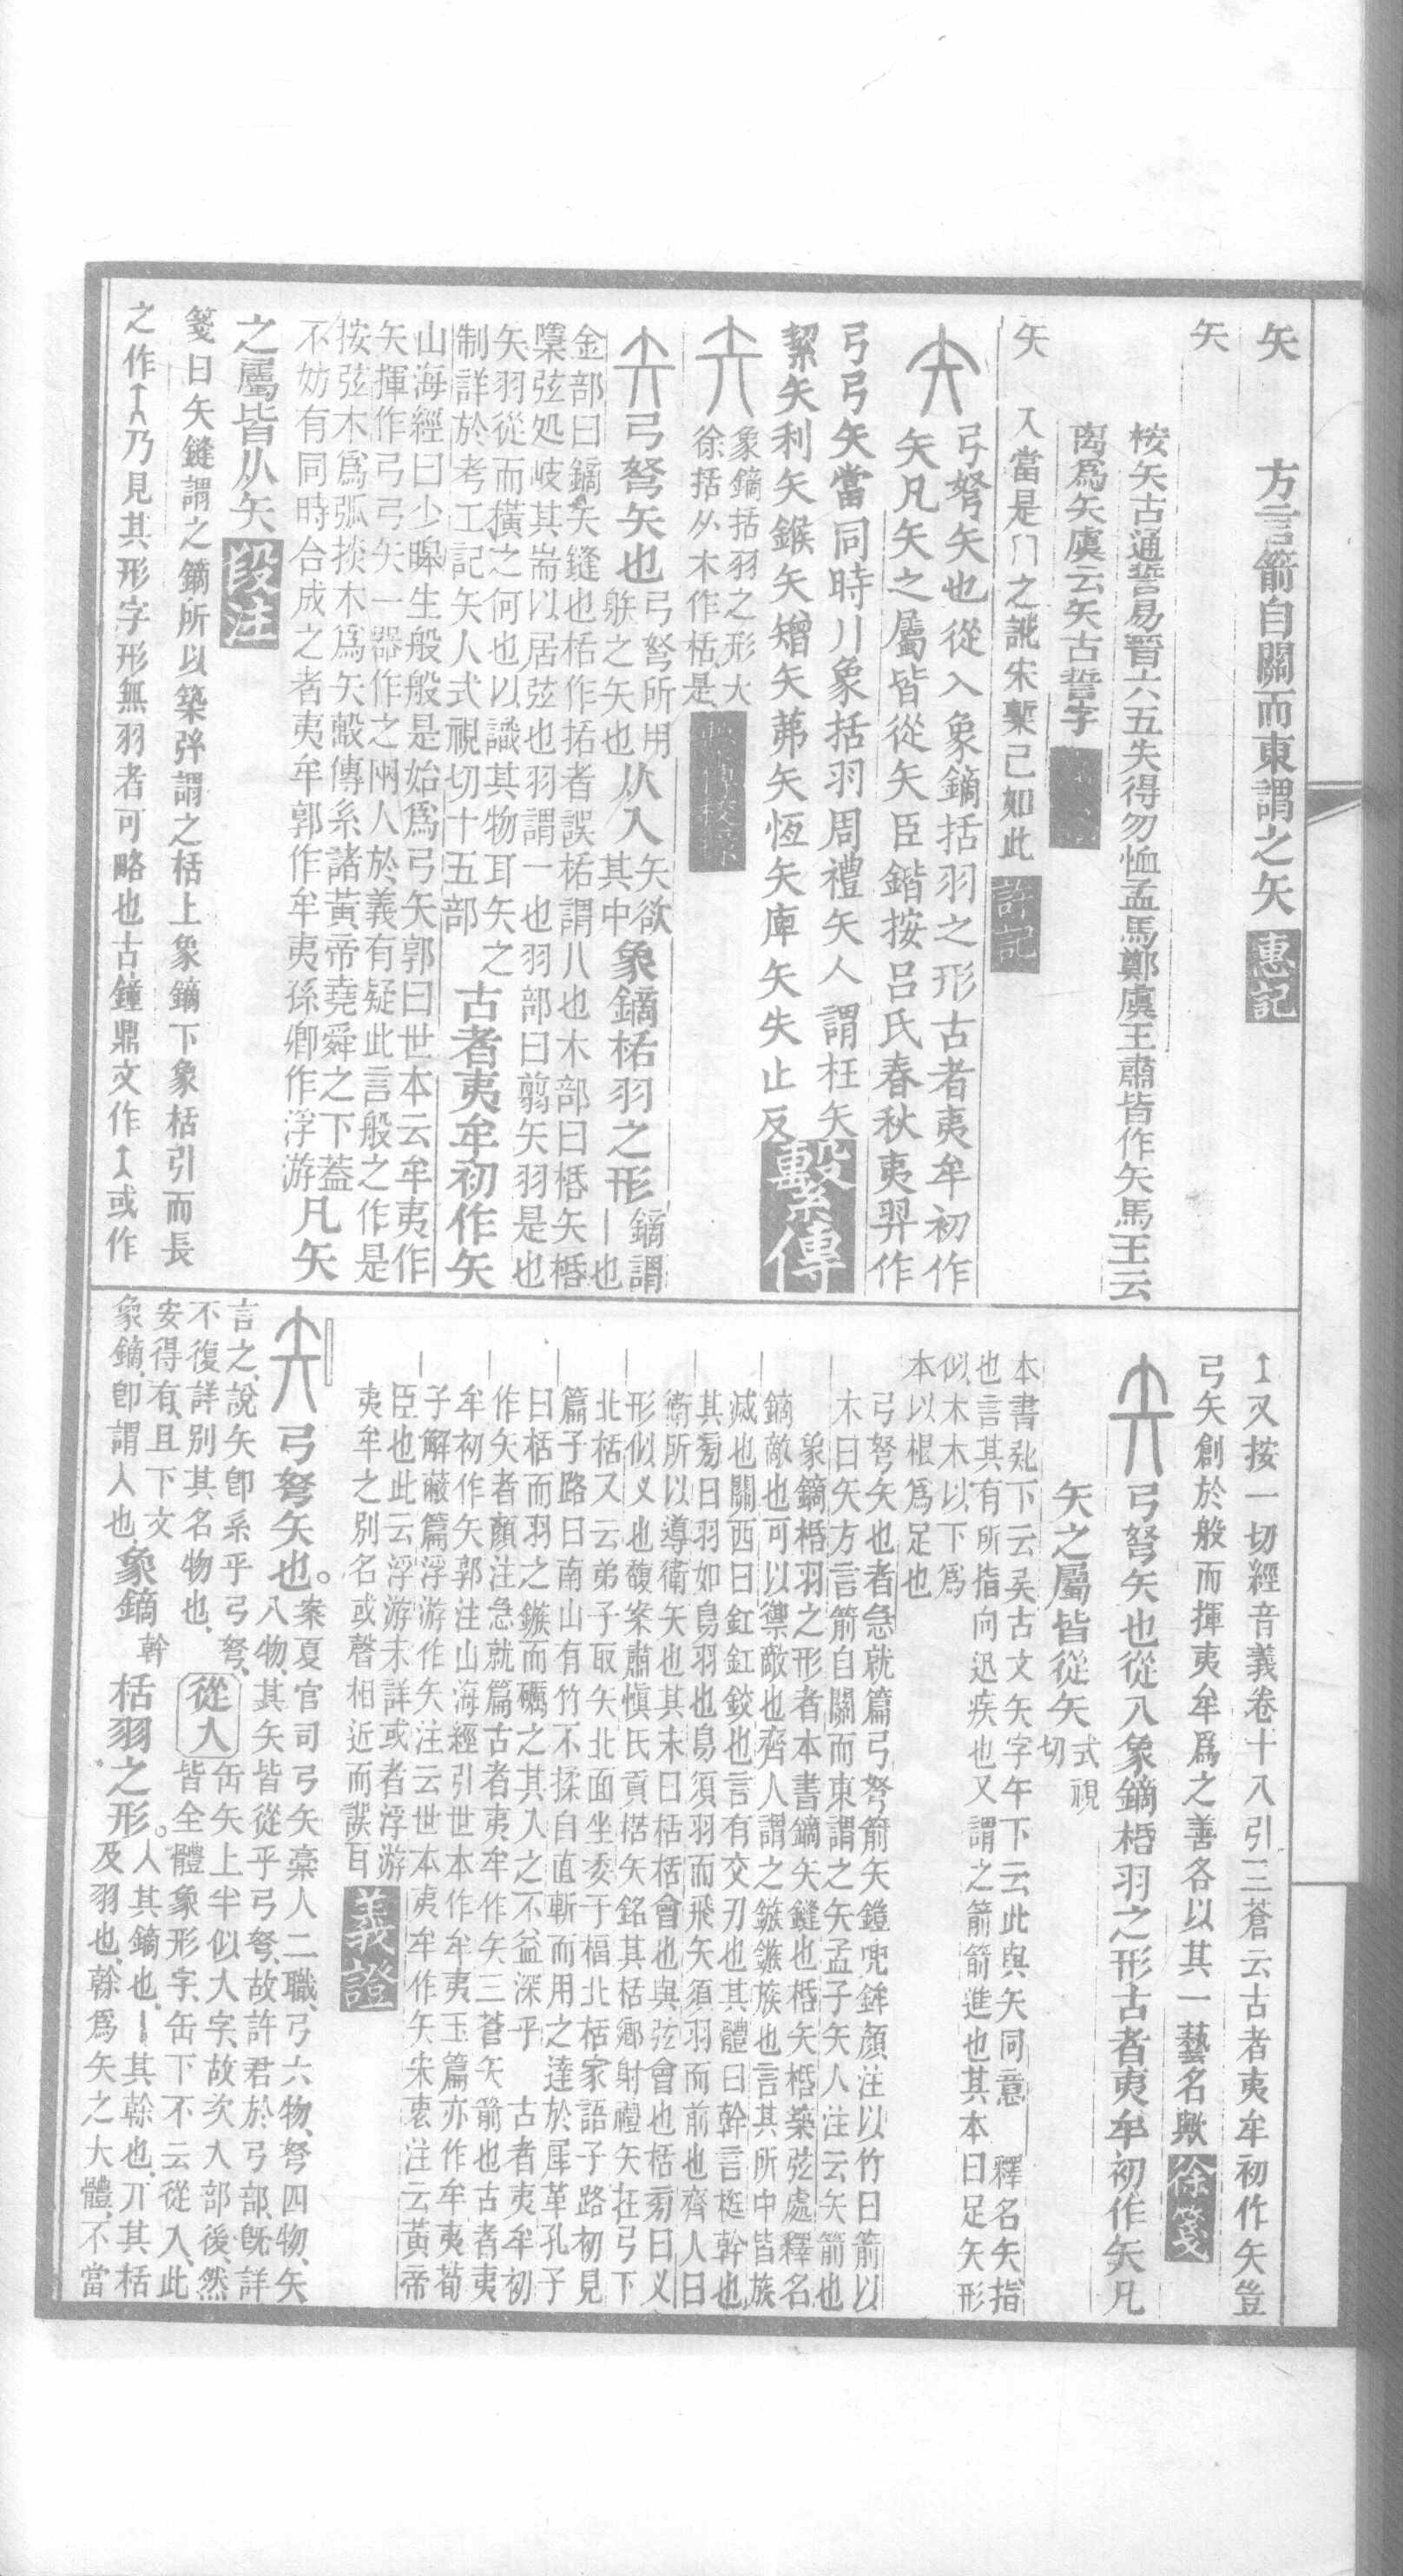 矢　方言箭自關而東謂之矢 惠記
矢
桉矢古通誓易晉六五失得勿恤孟馬鄭虞王肅皆作矢馬王云
离爲矢虞云矢古誓字
矢　入當是冂之譌宋槧已如此 許記
弓弩矢也從入象鏑括羽之形古者夷牟初作
矢凡矢之屬皆從矢臣鍇按呂氏春秋夷羿作
弓弓矢當同時八象括羽周禮矢人謂枉矢
絜矢利矢鍭矢矰矢茀矢恆矢庳矢失止反 繫傳
象鏑括羽之形大
徐括从木作栝是
弓弩矢也 弓弩所用
躲之矢也 从入 矢欲
其中 象鏑栝羽之形 鏑謂丨也
金部曰鏑矢鏠也栝作括者誤栝謂八也木部曰桰矢桰
檃弦処岐其耑以居弦也羽謂一也羽部曰翦矢羽是也
矢羽從而橫之何也以識其物耳矢之
制詳於考工記矢人式視切十五部 古者夷牟初作矢
山海經曰少皞生般般是始爲弓矢郭曰世本云牟夷作
矢揮作弓弓矢一器作之㒳人於義有疑此言般之作是
按弦木爲弧掞木爲矢毄傳系諸黃帝堯舜之下蓋
不妨有同時合成之者夷牟郭作牟夷孫卿作浮游 凡矢
之屬皆从矢 段注
箋曰矢鏠謂之鏑所以築弦謂之栝上象鏑下象栝引而長
之作乃見其形字形無羽者可略也古鐘鼎文作或作
又按一切經音義卷十八引三蒼云古者夷牟初作矢豈
弓矢創於般而揮夷牟爲之善各以其一藝名歟 徐箋
弓弩矢也從入象鏑桰羽之形古者夷牟初作矢凡
矢之屬皆從矢 式視
切
本書𥏼下云㠯古文矢字午下云此與矢同意　釋名矢指
也言其有所指向迅疾也又謂之箭箭進也其本曰足矢形
似木木以下爲
本以根爲足也
弓弩矢也者急就篇弓弩箭矢鎧兜鉾顏注以竹曰箭以
木曰矢方言箭自關而東謂之矢孟子矢人注云矢箭也
象鏑桰羽之形者本書鏑矢鏠也桰矢桰築弦處釋名
鏑敵也可以禦敵也齊人謂之鏃鏃族也言其所中皆族
滅也關西曰釭釭鉸也言有交刃也其體曰幹言梃幹也
其旁曰羽如鳥羽也鳥須羽而飛矢須羽而前也齊人曰
衞所以導衞矢也其末曰栝栝會也與弦會也栝旁曰义
形似义也馥案肅慎氏貢楛矢銘其栝鄉射禮矢在弓下
北栝又云弟子取矢北面坐委于楅北栝家語子路初見
篇子路曰南山有竹不揉自直斬而用之達於犀革孔子
曰栝而羽之鏃而礪之其入之不益深乎　古者夷牟初
作矢者顏注急就篇古者夷牟作矢三蒼矢箭也古者夷
牟初作矢郭注山海經引世本作牟夷玉篇亦作牟夷荀
子解蔽篇浮游作矢注云世本夷牟作矢宋衷注云黃帝
臣也此云浮游未詳或者浮游
夷牟之別名或聲相近而誤耳 義證
弓弩矢也。案夏官司弓矢槀人二職、弓六物、弩四物、矢
八物、其矢皆從乎弓弩、故許君於弓部、旣詳
言之、說矢卽系乎弓弩、 從入 缶矢上半似大字、故次入部後、然
不復詳別其名物也、 皆全體象形字、缶下不云從入、此
安得有、且下文
象鏑、卽謂人也、 象鏑 幹 栝羽之形。人其鏑也、丨其榦也、丌其栝
及羽也、榦爲矢之大體、不當